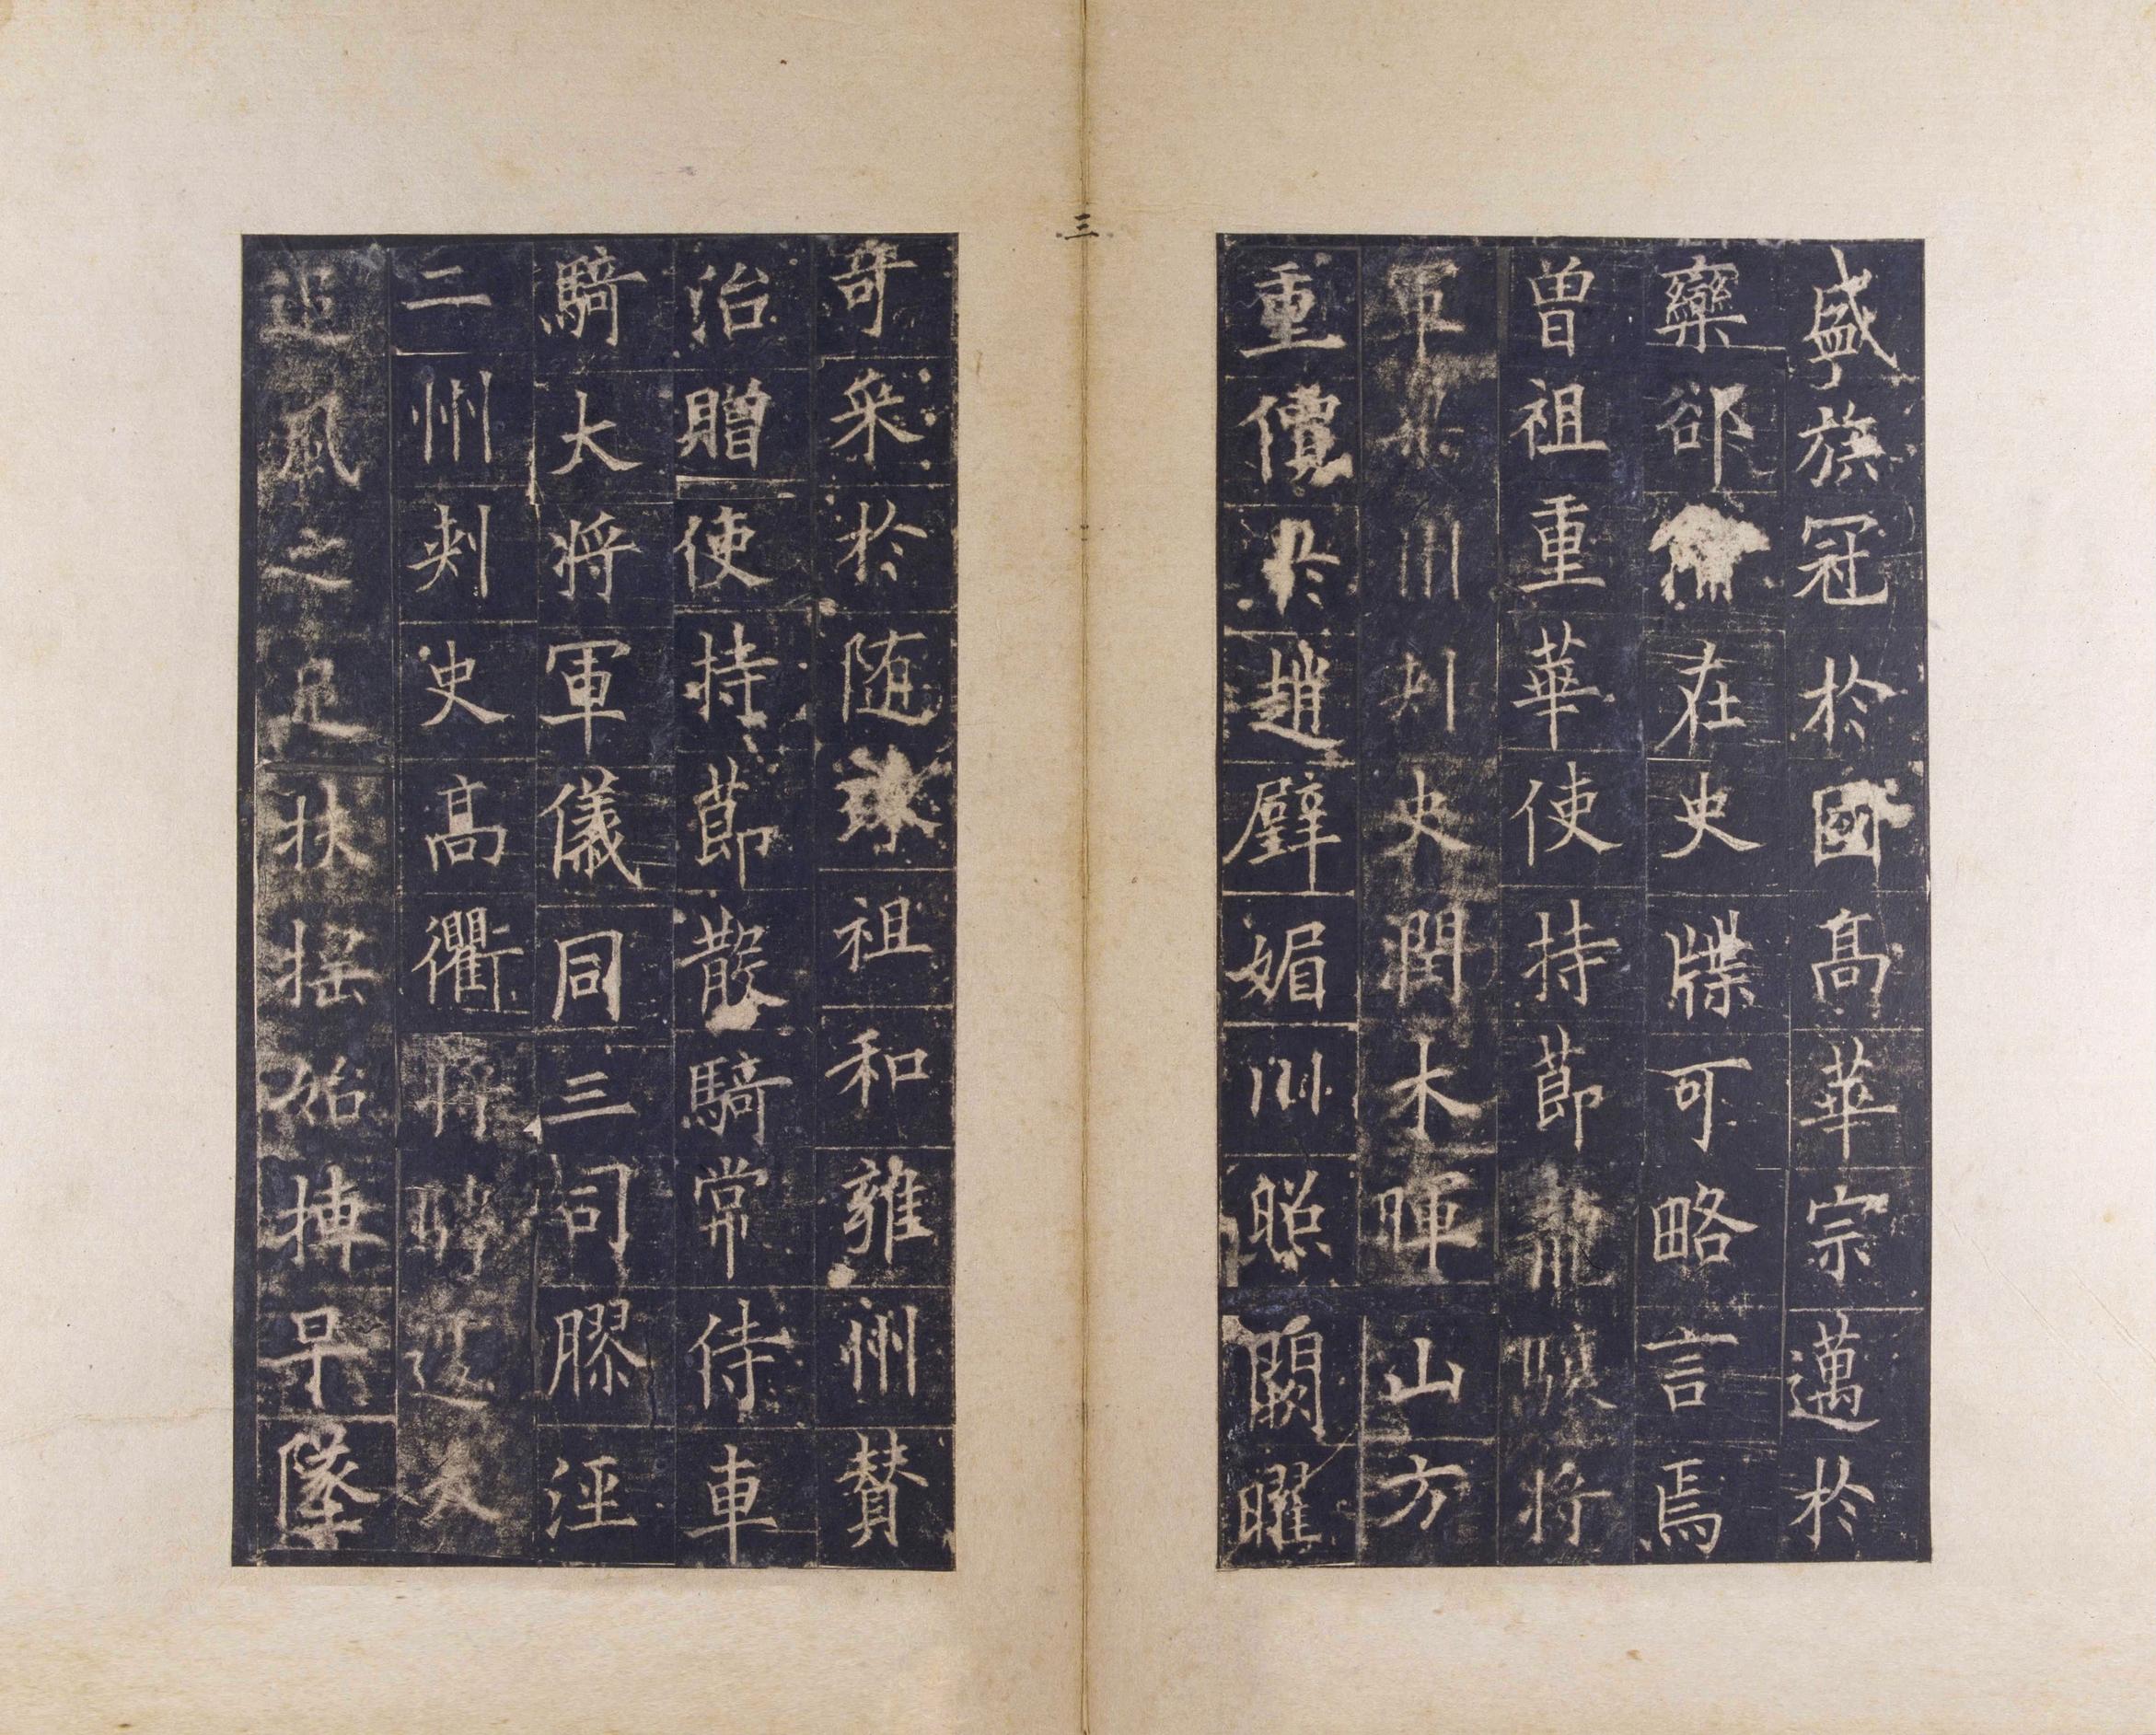 盛族冠於國高華宗邁於
欒郤在史牒可略言焉
曾祖重華使持節龍驤將
軍州刺史潤木暉山方
重價於趙璧媚川照闕曜
奇采於随珠祖和雍州贊
治贈使持節散騎常侍車
騎大将軍儀同三司膠涇
二州刺史高衢将騁逸
追風之足扶摇始摶早墜
三